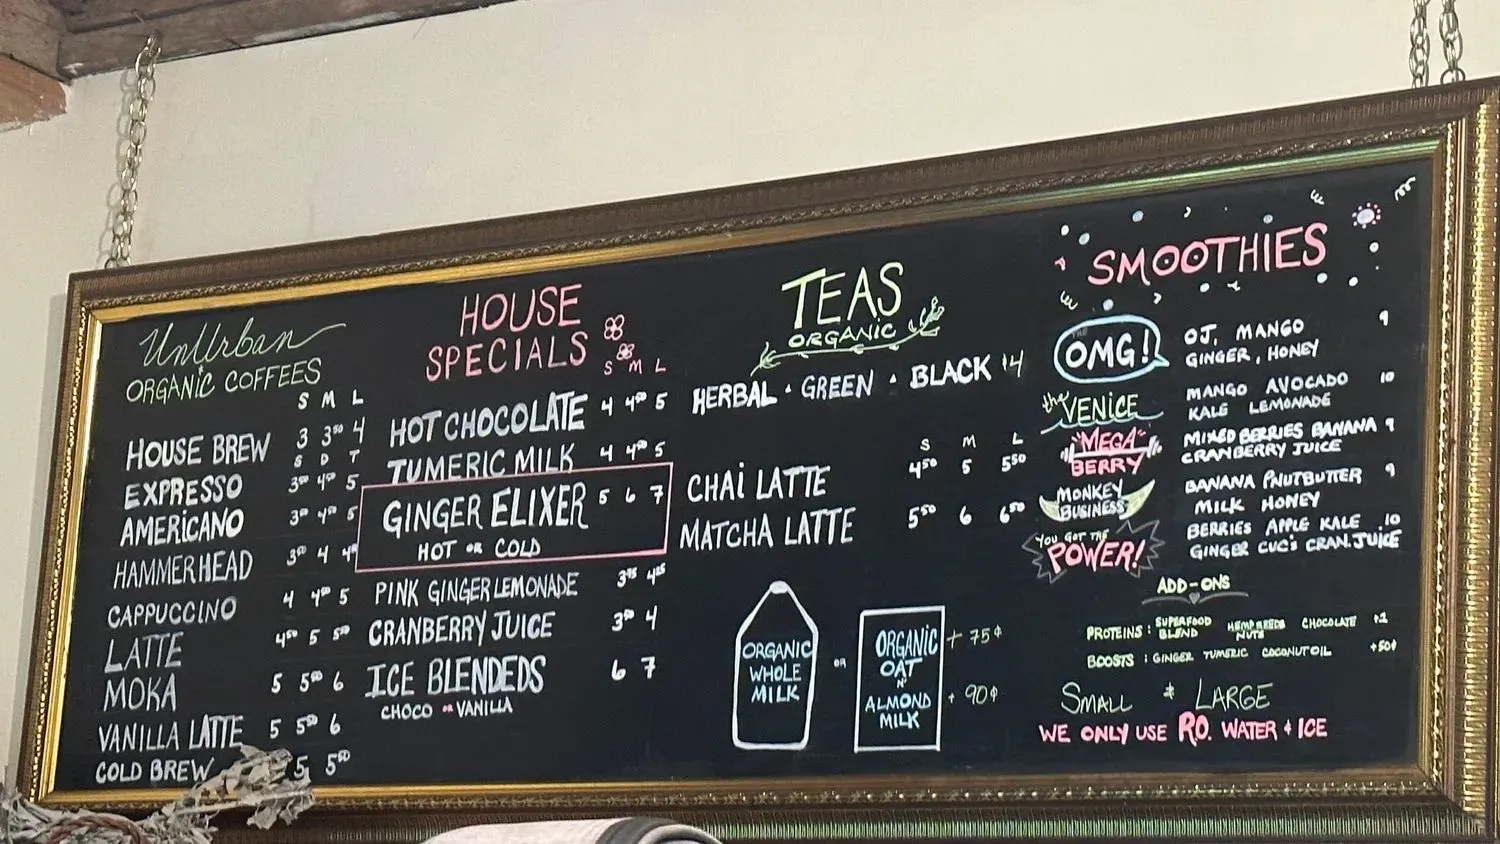 UnUrban
ORGANIC COFFEES
S M L
HOUSE BREW 3 3⁵⁰ 4
S D T
EXPRESSO 3⁵⁰ 4⁵⁰ 5
AMERICANO 3⁵⁰ 4⁵⁰ 5
HAMMERHEAD 3⁵⁰ 4
CAPPUCCINO 4 4⁵⁰ 5
LATTE 4⁵⁰ 5 5⁵⁰
MOKA 5 5⁵⁰ 6
VANILLA LATTE 5 5⁵⁰ 6
COLD BREW 5 5⁵⁰
HOUSE
SPECIALS
S M L
HOT CHOCOLATE 4 4⁵⁰ 5
TUMERIC MILK 4 4⁵⁰ 5
GINGER ELIXER 5 6 7
HOT OR COLD
PINK GINGER LEMONADE 3⁷⁵ 4²⁵
CRANBERRY JUICE 3⁵⁰ 4
ICE BLENDEDS 6 7
CHOCO OR VANILLA
TEAS
ORGANIC
HERBAL · GREEN · BLACK 4
S M L
CHAI LATTE 4⁵⁰ 5 5⁵⁰
MATCHA LATTE 5⁵⁰ 6 6⁵⁰
ORGANIC
WHOLE
MILK
OR
ORGANIC + 75¢
OAT
N'
ALMOND + 90¢
MILK
SMOOTHIES
THE
OMG!
OJ, MANGO 9
GINGER, HONEY
the VENICE
MANGO AVOCADO 10
KALE LEMONADE
"MEGA"
BERRY
MIXED BERRIES BANANA 9
CRANBERRY JUICE
MONKEY
BUSINESS
BANANA PNUTBUTTER 9
MILK HONEY
YOU GOT THE
POWER!
BERRIES APPLE KALE 10
GINGER CUC'S CRAN.JUICE
ADD-ONS
PROTEINS : SUPERFOOD BLEND HEMPSEEDS NUTS CHOCOLATE +1
BOOSTS : GINGER TUMERIC COCONUT OIL +50¢
SMALL & LARGE
WE ONLY USE R.O. WATER & ICE